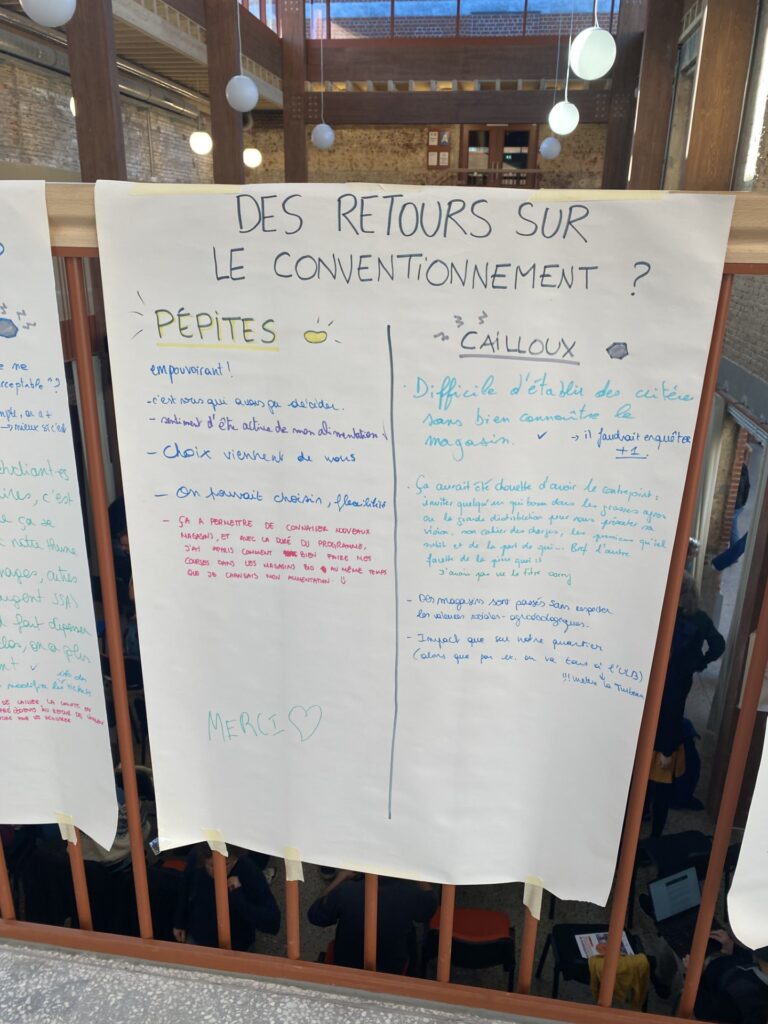 DES RETOURS SUR
LE CONVENTIONNEMENT ?
PÉPITES
empouvoirant !
- c'est nous qui avons pu décider.
- sentiment d'être actrice de mon alimentation !
- Choix viennent de nous
- On pouvait choisir, flexibilité
- ÇA A PERMETTRE DE CONNAISER NOUVEAUX
MAGASINS, ET AVEC LA DURÉ DU PROGRAMME,
J'AI APRIS COMMENT BIEN FAIRE MES
COURSES DANS LES MAGASINS BIO AU MÊME TEMPS
QUE JE CHANGAIS MON ALIMENTATION
MERCI
CAILLOUX
· Difficile d'établir des critères
sans bien connaître le
magasin. ✓ → il faudrait enquêter
+1.
· Ça aurait été chouette d'avoir le contrepoint :
inviter quelqu'un qui bosse dans les grosses agro
ou la grande distribution pour nous présenter sa
vision, son cahier des charges, les pressions qu'iel
subit et de la part de qui... Bref l'autre
facette de la pièce quoi !!
J'avais pas vu le titre sorry
- Des magasins sont passés sans respecter
les valeurs sociales - agroécologiques.
- Impact que sur notre quartier
(alors que par ex. on va tous à l'ULB)
!!! mettre la
ne
acceptable" ?
→ mieux si c'est
, c'est
ce se
notre
, autres
SSA
fait dépenser
, on a plus
✓
modifier les tickets